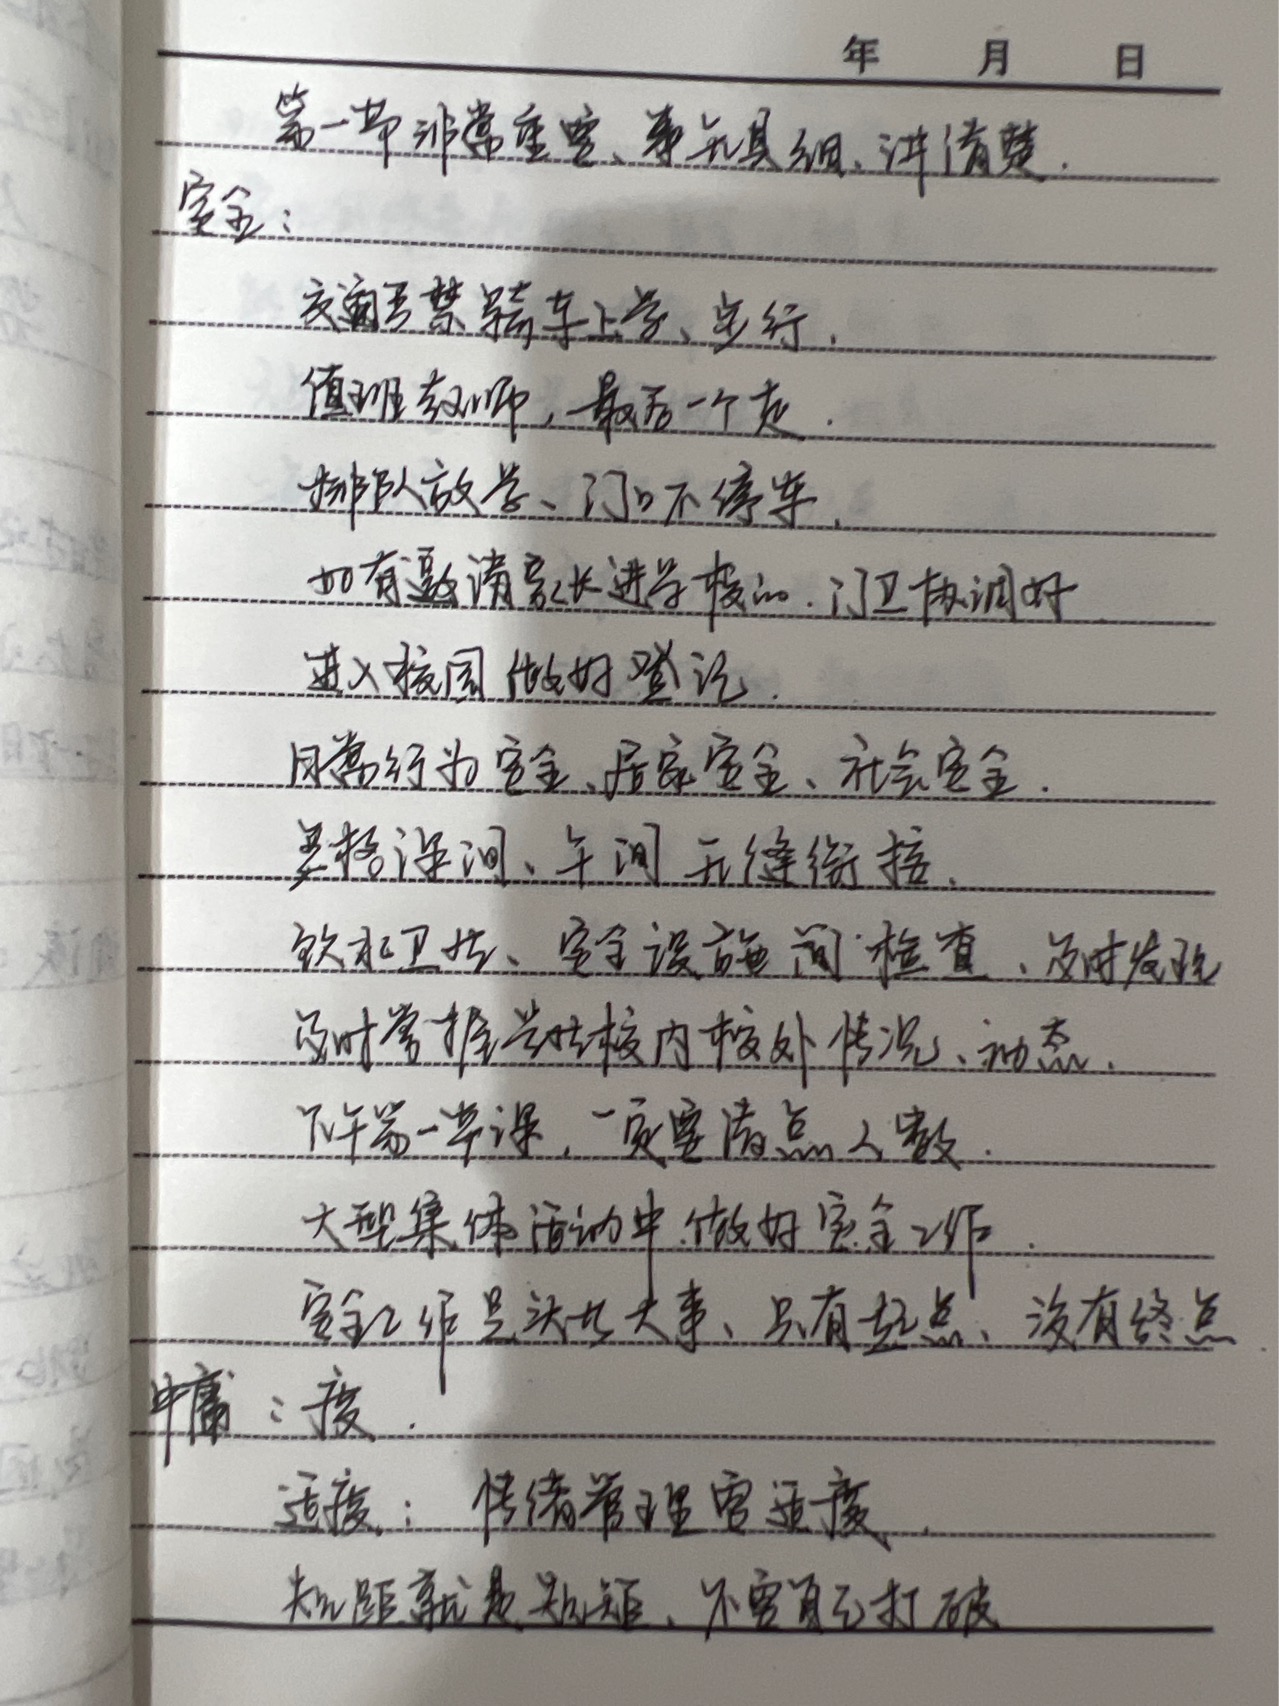 年 月 日
第一节非常重要、事无具细、讲清楚.
安全:
交通 严禁骑车上学、步行.
值班教师,最后一个走.
排队放学、门口不停车.
如有邀请家长进学校的.门卫协调好
进入校园做好登记.
日常行为安全、居家安全、社会安全.
严格课间、午间无缝衔接.
饮水卫生、安全设施 检查、及时发现
及时掌握学生校内校外情况、动态.
下午第一节课,一定要清点人数.
大型集体活动中做好安全工作.
安全工作是头大事、只有起点、没有终点
中庸:度.
适度:情绪管理要适度.
规距就是规矩、不要自己打破